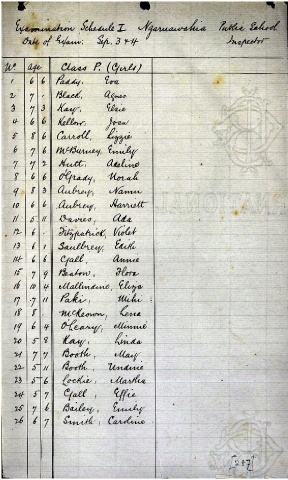 Examination Schedule I Ngaruawahia Public School
Date of Exam. Sep. 3+4 Inspector
No age Class P. (Girls)
1 6 6 Paddy, Eva
2 7 . Black, Agnes
3 7 3 Kay, Elsie
4 6 6 Kellow, Joan
5 8 6 Carroll, Lizzie
6 7 6 McBurney, Emily
7 7 2 Hutt, Adeline
8 6 6 O'Grady, Norah
9 8 3 Aubrey,
10 6 6 Aubrey, Harriett
11 5 11 Davies, Ada
12 6 . Fitzpatrick, Violet
13 6 1 Saulbrey, Edith
14 6 6 Gall, Annie
15 7 9 Beaton, Flora
16 10 4 Mallindine, Eliza
17 7 11 Paki, Mihi
18 8 McKeown, Lena
19 6 4 O'Leary, Minnie
20 5 8 Kay, Linda
21 7 7 Booth, May
22 5 11 Booth, Undine
23 5 6 Lockie, Martha
24 5 7 Gall, Effie
25 7 6 Bailey, Emily
26 6 7 Smith, Caroline